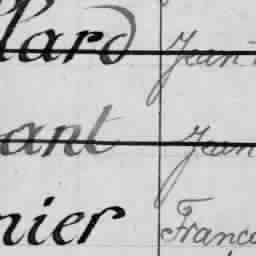 llard Jean
ant Jean
nier Franço